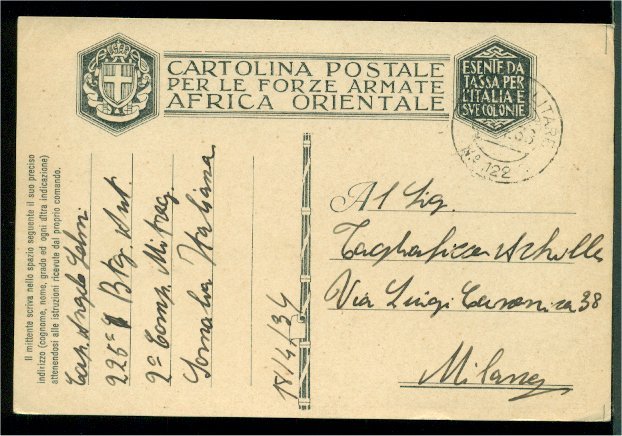 CARTOLINA POSTALE
PER LE FORZE ARMATE
AFRICA ORIENTALE
ESENTE DA
TASSA PER
L'ITALIA E
SVE COLONIE
N.º 122
Il mittente scriva nello spazio seguente il suo preciso
indirizzo (cognome, nome, grado ed ogni altra indicazione)
attenendosi alle istruzioni ricevute dal proprio comando.
Cap. Angelo
225º Btg.
2ª Comp. Mitrag.
Somalia Italiana
Al Sig.
Achille
Via Luigi 38
Milano